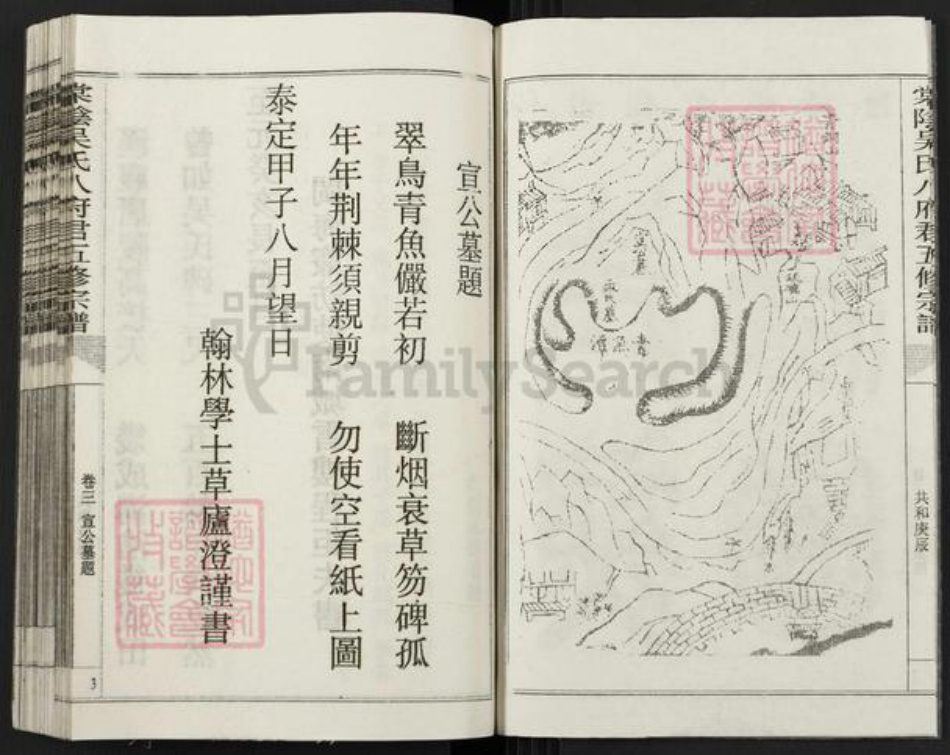 棠陰吳氏八府君五修宗譜
共和庚辰
宣公墓題
翠鳥青魚儼若初 斷烟衰草笏碑孤
年年荆棘須親剪 勿使空看紙上圖
泰定甲子八月望日
翰林學士草廬澄謹書
棠陰吳氏八府君五修宗譜
卷三 宣公墓題
3
FamilySearch